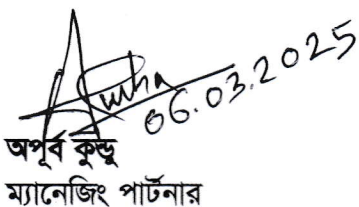 06.03.2025
অপূর্ব কুন্ডু
ম্যানেজিং পার্টনার